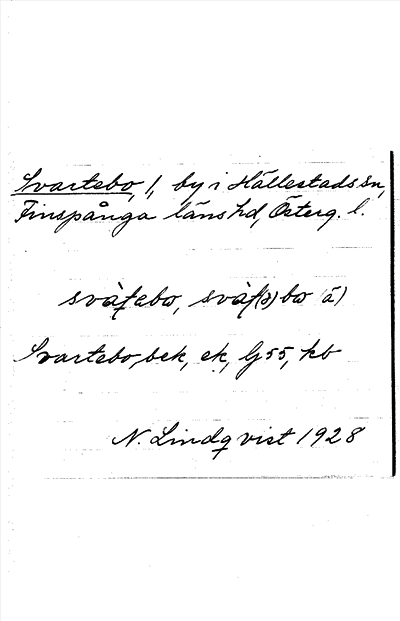 Svartebo, 1, by i Hällestads sn,
Finspånga läns hd, Österg. l.
svàʈebo, svàʈ(ə)bo (ä)
Svartebo, bek, ek, Gj 55, kb
N. Lindqvist 1928